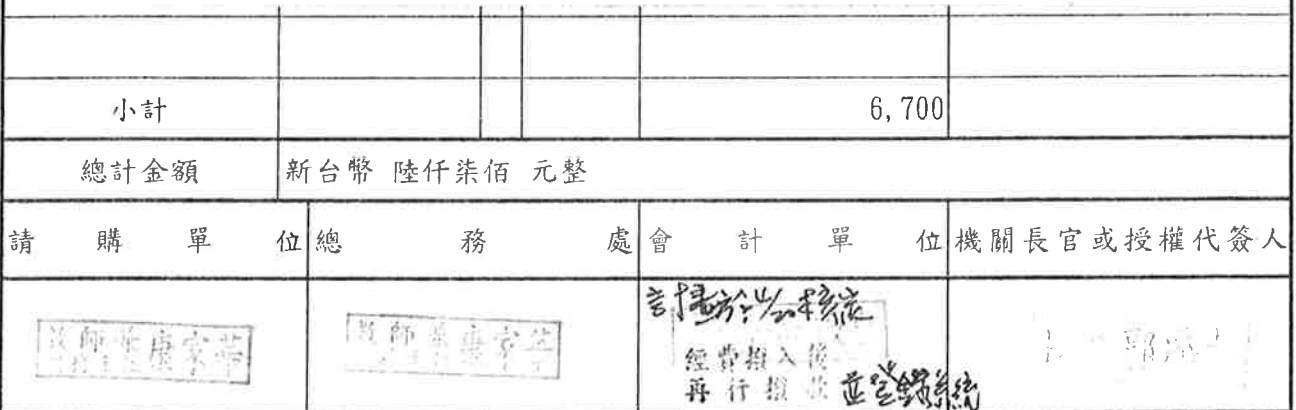 小計 6,700
總計金額 新台幣 陸仟柒佰 元整
請購單位 總務處 會計單位 機關長官或授權代簽人
教師 康家華 教師 康家華
經費撥入後
再行撥款 並登錄系統